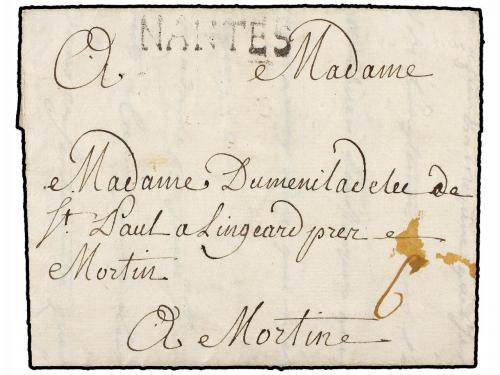 NANTES
A Madame
Madame Dumeniladelee de
St Paul a Lingeard prez
Mortin
6
A Mortine